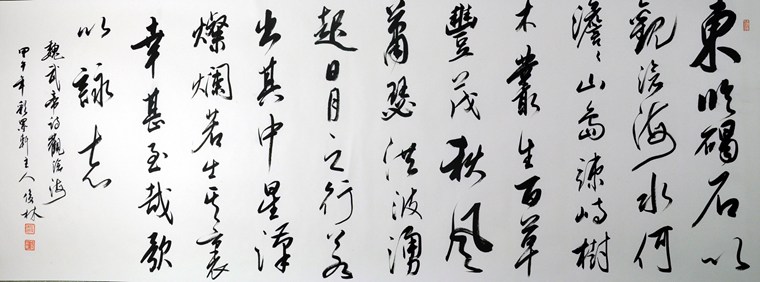 東臨碣石以
觀滄海水何
澹々山島竦峙樹
木叢生百草
豐茂秋風
蕭瑟洪波湧
起日月之行若
出其中星漢
燦爛若出其裏
幸甚至哉歌
以詠志
魏武帝詩觀滄海
甲午年主人俊林